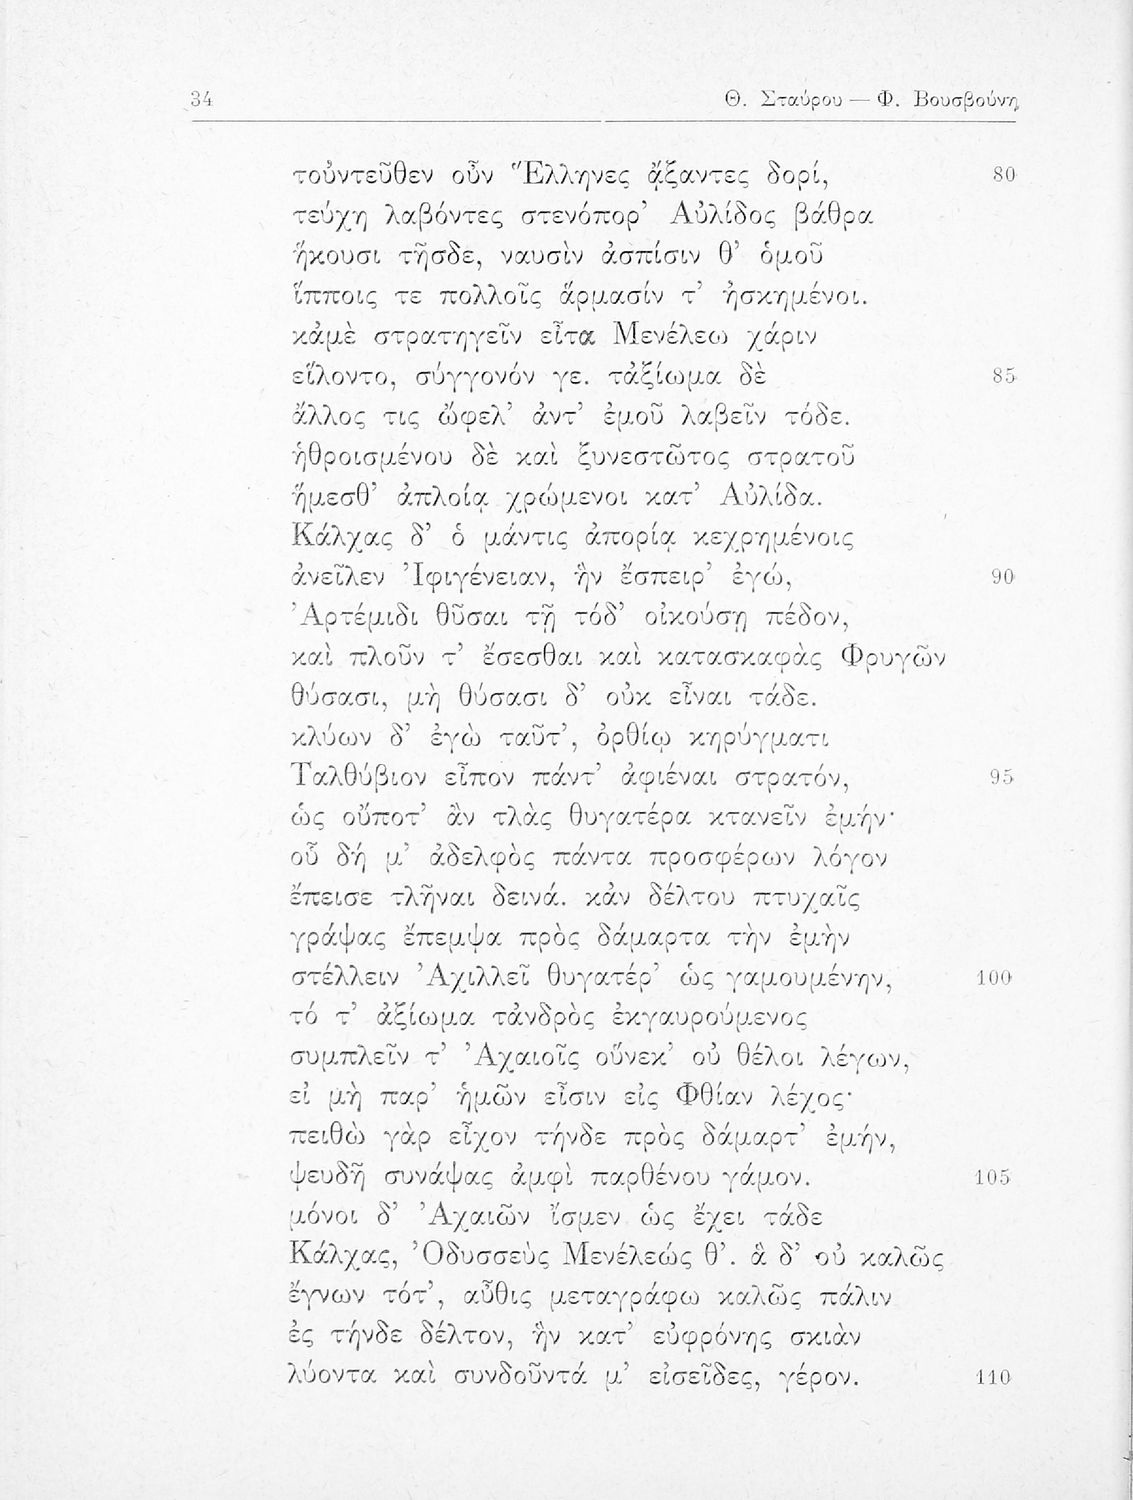 34 Θ. Σταύρου — Φ. Βουσβούνη
τοὐντεῦθεν οὖν Ἕλληνες ᾄξαντες δορί, 80
τεύχη λαβόντες στενόπορ’ Αὐλίδος βάθρα
ἥκουσι τῆσδε, ναυσὶν ἀσπίσιν θ’ ὁμοῦ
ἵπποις τε πολλοῖς ἅρμασίν τ’ ἠσκημένοι.
κἀμὲ στρατηγεῖν εἶτα Μενέλεω χάριν
εἵλοντο, σύγγονόν γε. τἀξίωμα δὲ 85
ἄλλος τις ὤφελ’ ἀντ’ ἐμοῦ λαβεῖν τόδε.
ἠθροισμένου δὲ καὶ ξυνεστῶτος στρατοῦ
ἥμεσθ’ ἀπλοίᾳ χρώμενοι κατ’ Αὐλίδα.
Κάλχας δ’ ὁ μάντις ἀπορίᾳ κεχρημένοις
ἀνεῖλεν Ἰφιγένειαν, ἣν ἔσπειρ’ ἐγώ, 90
Ἀρτέμιδι θῦσαι τῇ τόδ’ οἰκούσῃ πέδον,
καὶ πλοῦν τ’ ἔσεσθαι καὶ κατασκαφὰς Φρυγῶν
θύσασι, μὴ θύσασι δ’ οὐκ εἶναι τάδε.
κλύων δ’ ἐγὼ ταῦτ’, ὀρθίῳ κηρύγματι
Ταλθύβιον εἶπον πάντ’ ἀφιέναι στρατόν, 95
ὡς οὔποτ’ ἂν τλὰς θυγατέρα κτανεῖν ἐμήν·
οὗ δή μ’ ἀδελφὸς πάντα προσφέρων λόγον
ἔπεισε τλῆναι δεινά. κἀν δέλτου πτυχαῖς
γράψας ἔπεμψα πρὸς δάμαρτα τὴν ἐμὴν
στέλλειν Ἀχιλλεῖ θυγατέρ’ ὡς γαμουμένην, 100
τό τ’ ἀξίωμα τἀνδρὸς ἐκγαυρούμενος
συμπλεῖν τ’ Ἀχαιοῖς οὕνεκ’ οὐ θέλοι λέγων,
εἰ μὴ παρ’ ἡμῶν εἶσιν εἰς Φθίαν λέχος·
πειθὼ γὰρ εἶχον τήνδε πρὸς δάμαρτ’ ἐμήν,
ψευδῆ συνάψας ἀμφὶ παρθένου γάμον. 105
μόνοι δ’ Ἀχαιῶν ἴσμεν ὡς ἔχει τάδε
Κάλχας, Ὀδυσσεὺς Μενέλεώς θ’. ἃ δ’ οὐ καλῶς
ἔγνων τότ’, αὖθις μεταγράφω καλῶς πάλιν
ἐς τήνδε δέλτον, ἣν κατ’ εὐφρόνης σκιὰν
λύοντα καὶ συνδοῦντά μ’ εἰσεῖδες, γέρον. 110